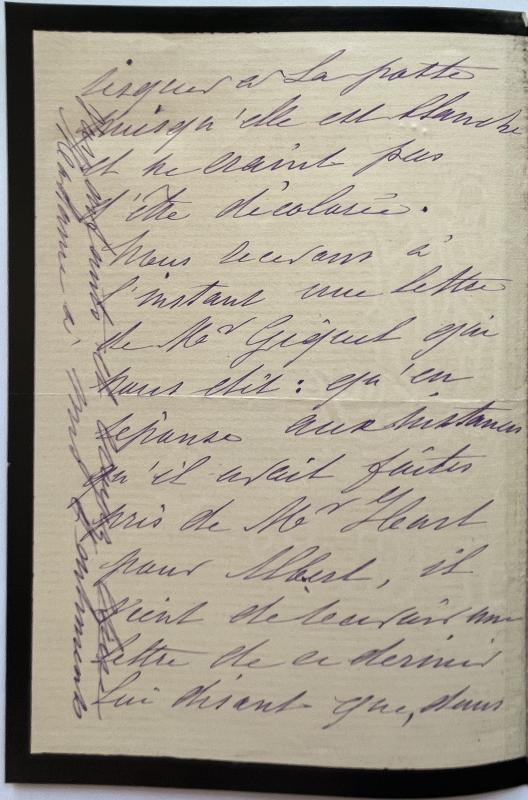 risquer à la poste
puisqu'elle est blanche
et ne craint pas
d'être décolorée.
Nous recevons à
l'instant une lettre
de Mr Giquel qui
nous dit : qu'en
réponse aux instances
qu'il avait faites
près de Mr Hart
pour Albert, il
vient de recevoir une
lettre de ce dernier
lui disant que, dans
Madame à